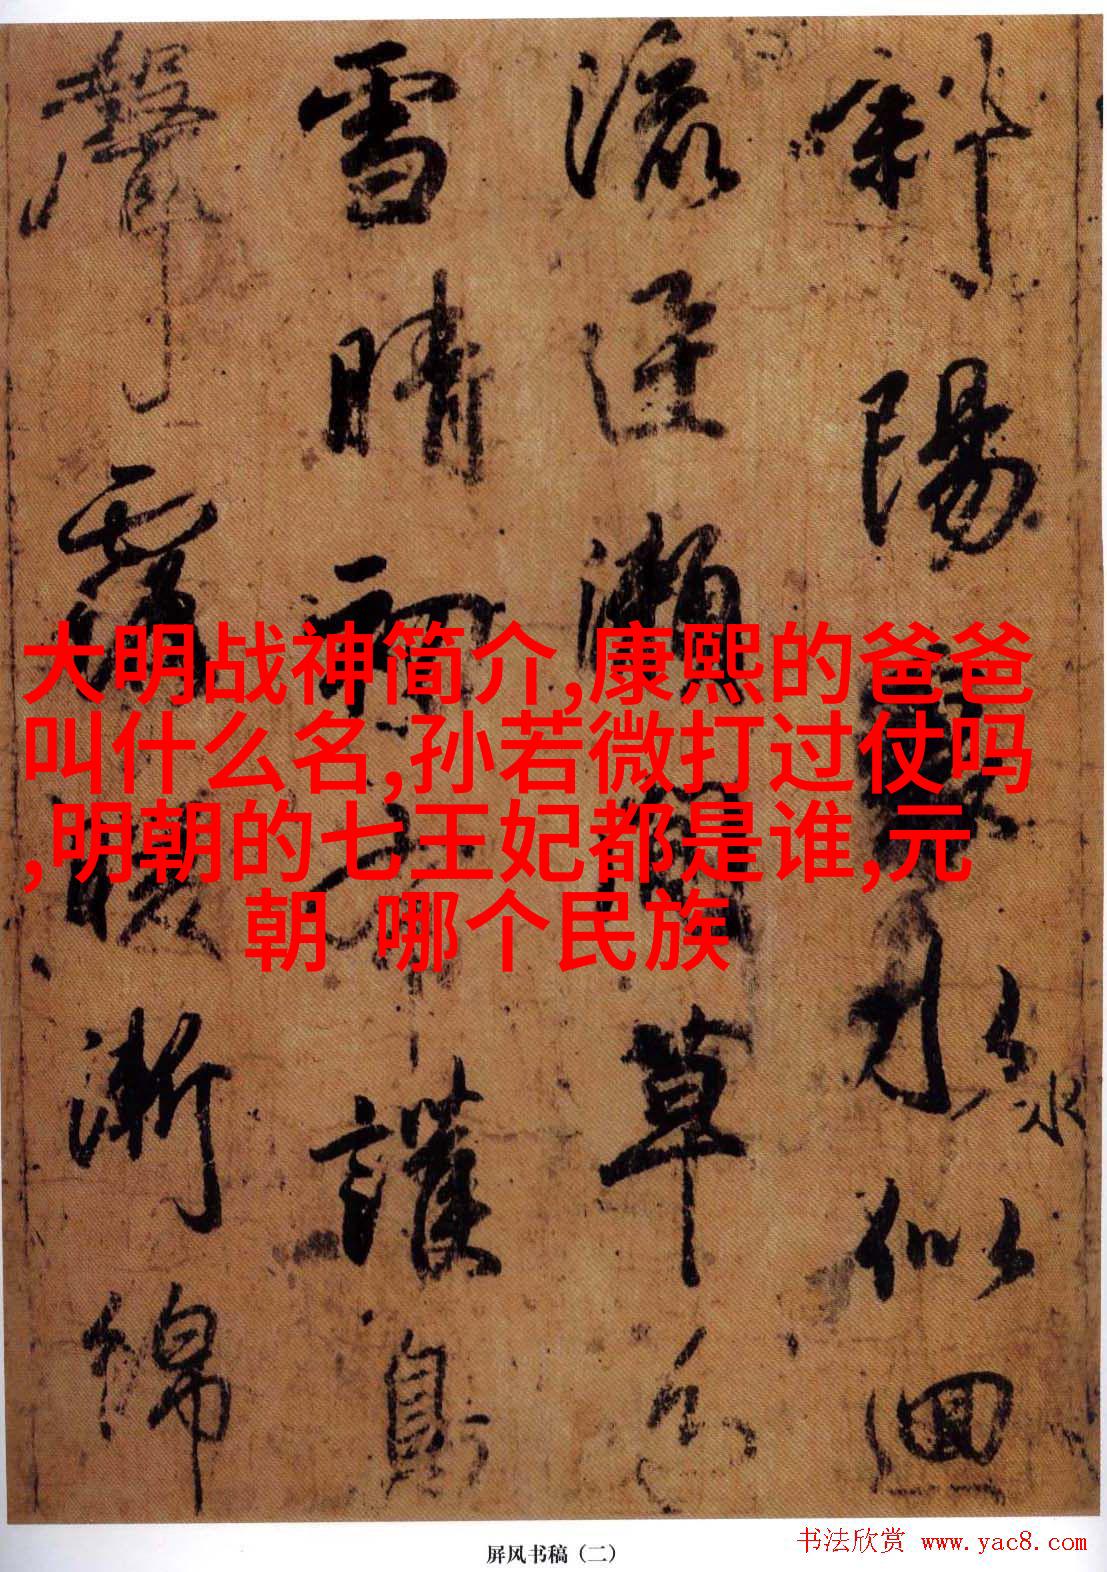 斜陽水似回
瀨草色
雪晴初護鳥
聲露暖漸綿
大明战神简介,康熙的爸爸
叫什么名,孙若微打过仗吗
,明朝的七王妃都是谁,元
朝 哪个民族
屏风书稿（二）
书法欣赏 www.yac8.com